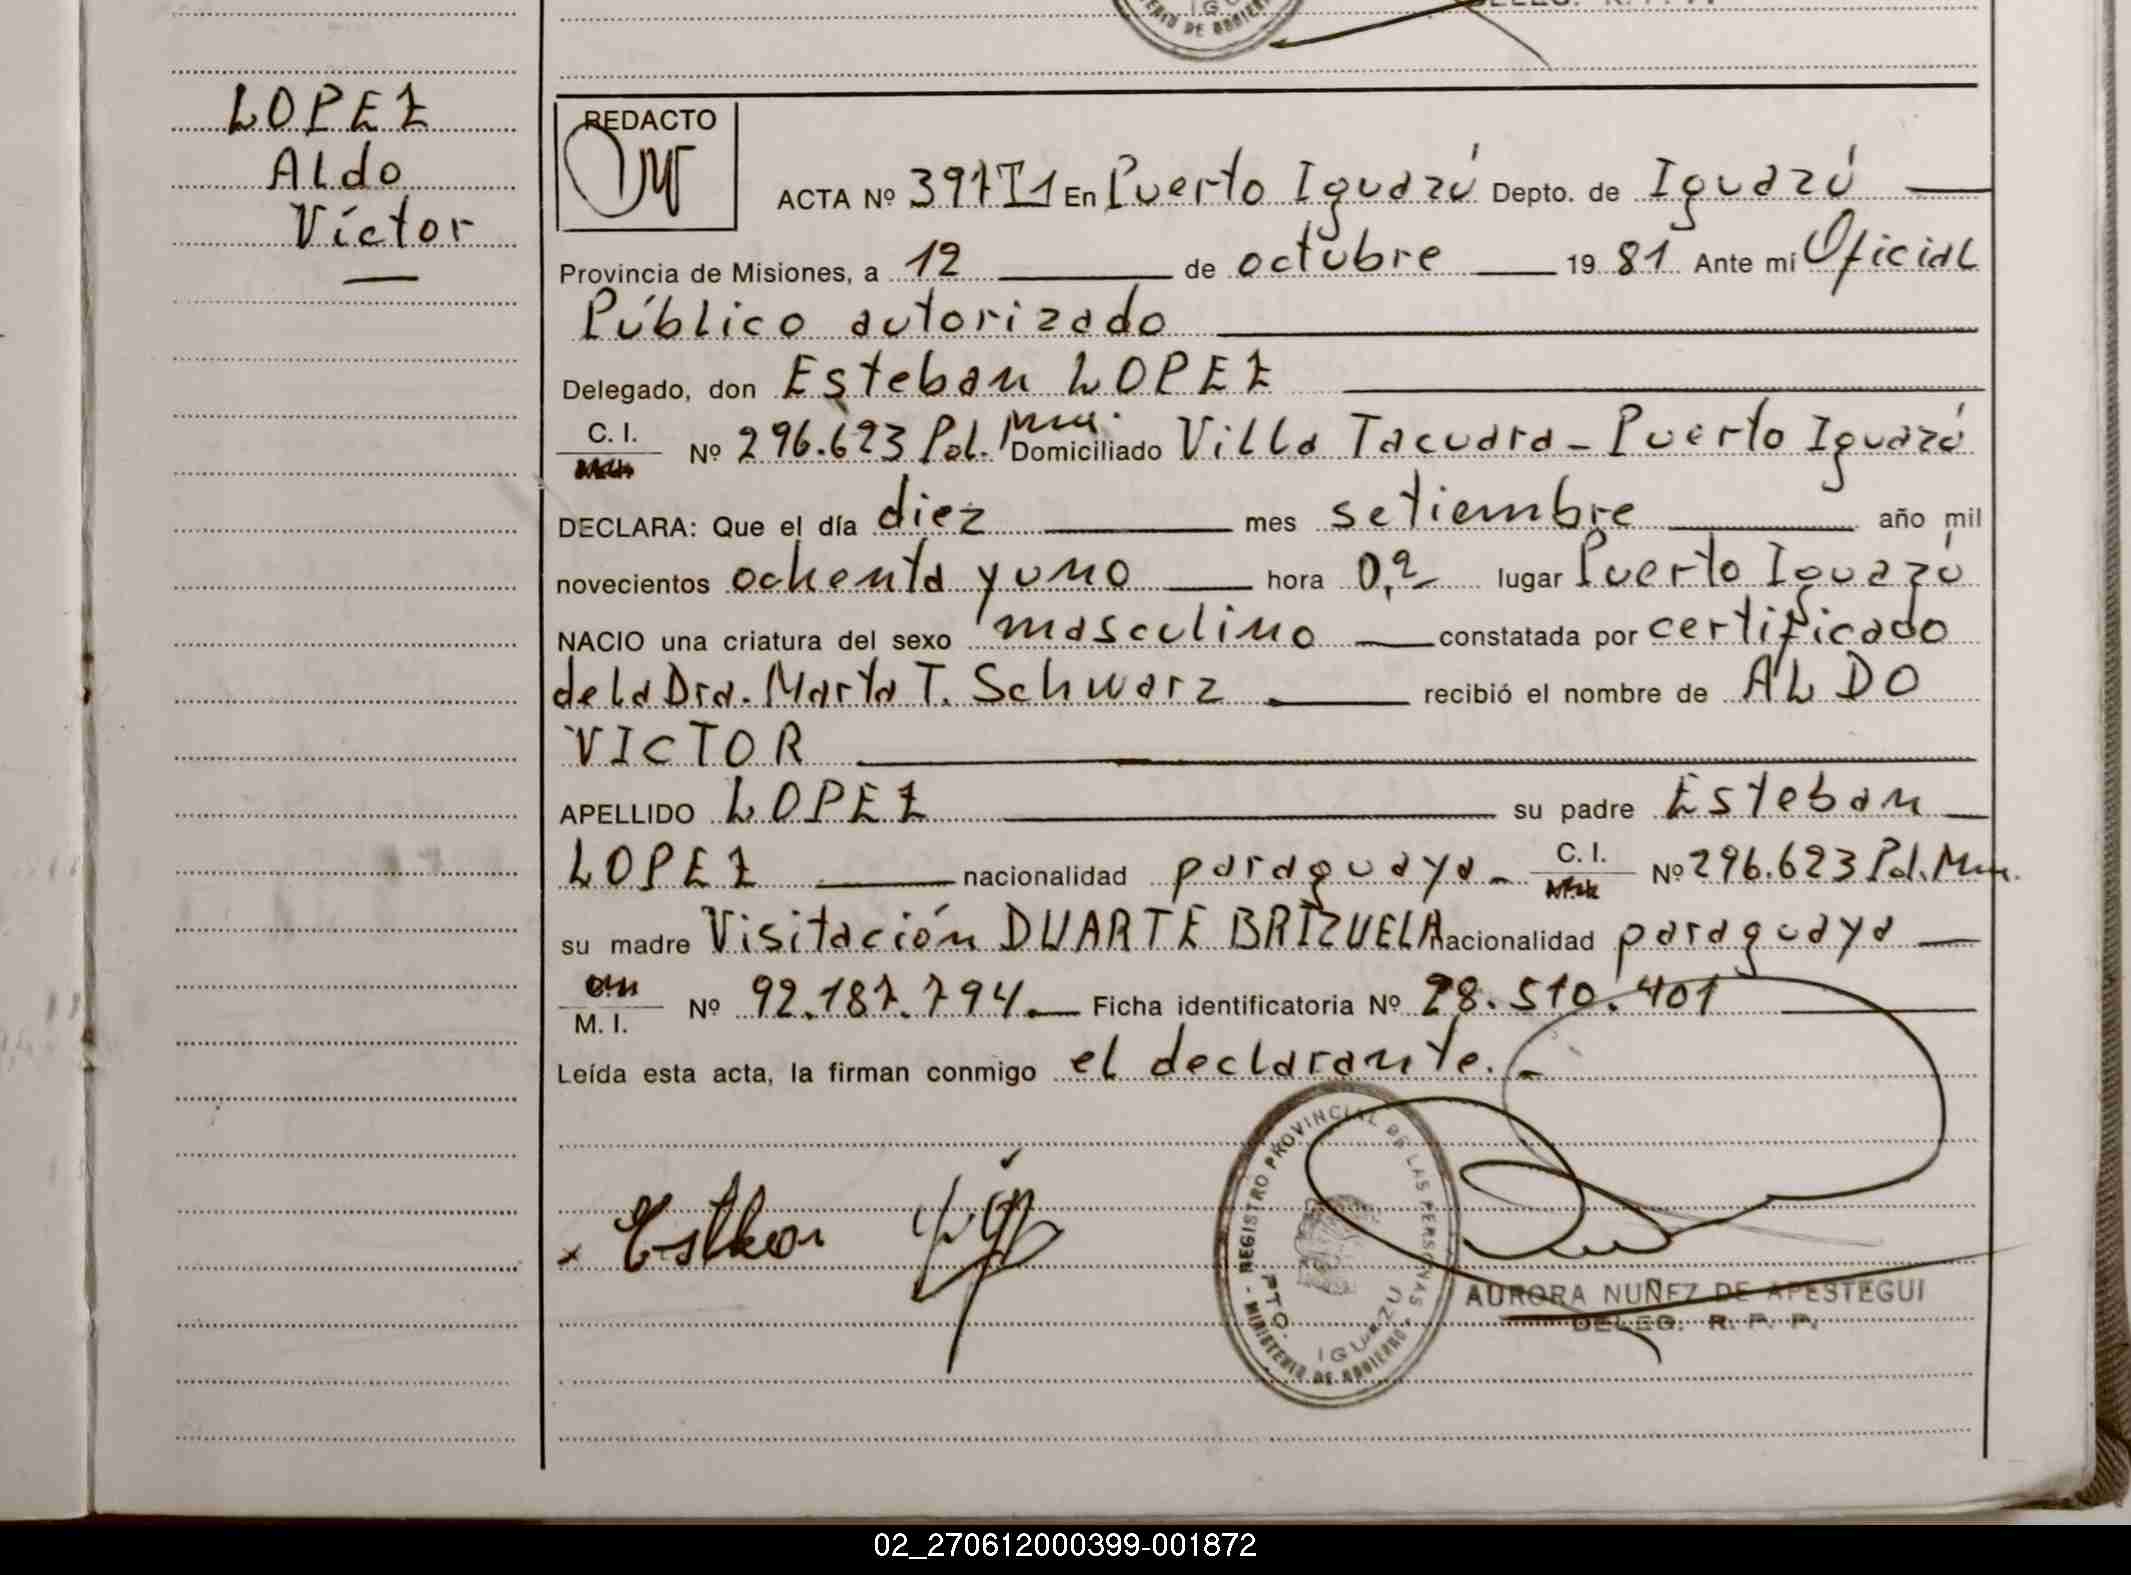 LOPEZ
Aldo
Víctor
REDACTO
ACTA Nº 397T1 En Puerto Iguazú Depto. de Iguazú
Provincia de Misiones, a 12 de octubre 1981 Ante mi Oficial
Público autorizado
Delegado, don Esteban LOPEZ
C. I. Nº 296.623 Pol. Mnes. Domiciliado Villa Tacuara - Puerto Iguazú
DECLARA: Que el día diez mes setiembre año mil
novecientos ochenta y uno hora 0,2 lugar Puerto Iguazú
NACIO una criatura del sexo masculino constatada por certificado
de la Dra. Marta T. Schwarz recibió el nombre de ALDO
VICTOR
APELLIDO LOPEZ su padre Esteban
LOPEZ nacionalidad paraguaya - C. I. Nº 296.623 Pol. Mnes.
su madre Visitación DUARTE BRIZUELA nacionalidad paraguaya
M. I. Nº 92.187.794. Ficha identificatoria Nº 28.510.401
Leída esta acta, la firman conmigo el declarante. -
REGISTRO PROVINCIAL DE LAS PERSONAS
PTO. IGUAZU
- MINISTERIO DE GOBIERNO -
AURORA NUÑEZ DE APESTEGUI
DELEG. R. P. P.
02_270612000399-001872